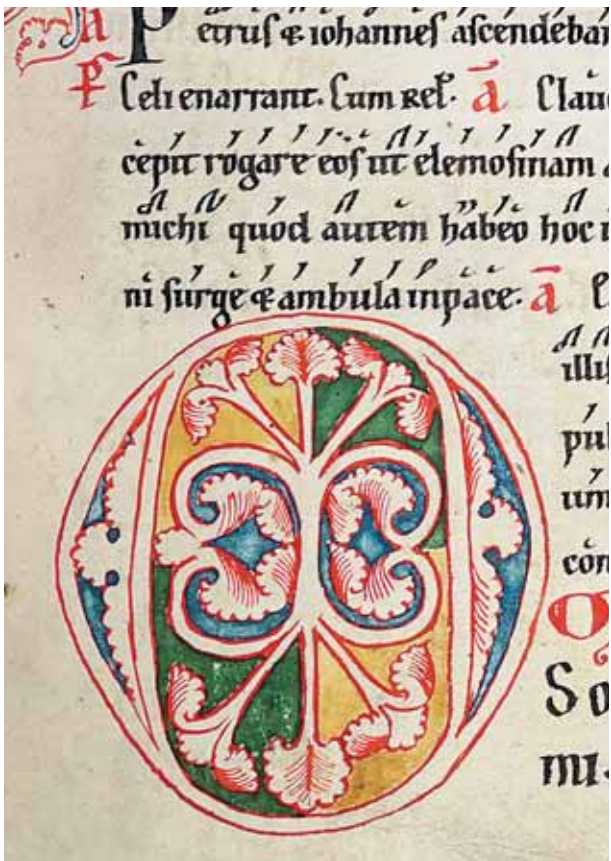 a Petrus & iohannes ascendeban
p̄ Celi enarrant. Cum rel̄. ā Clau
cepit rogare eos ut elemosinam a
michi quod autem habeo hoc t
ni surge & ambula in pace. ā
O illis
pul
um
con
So
mi.